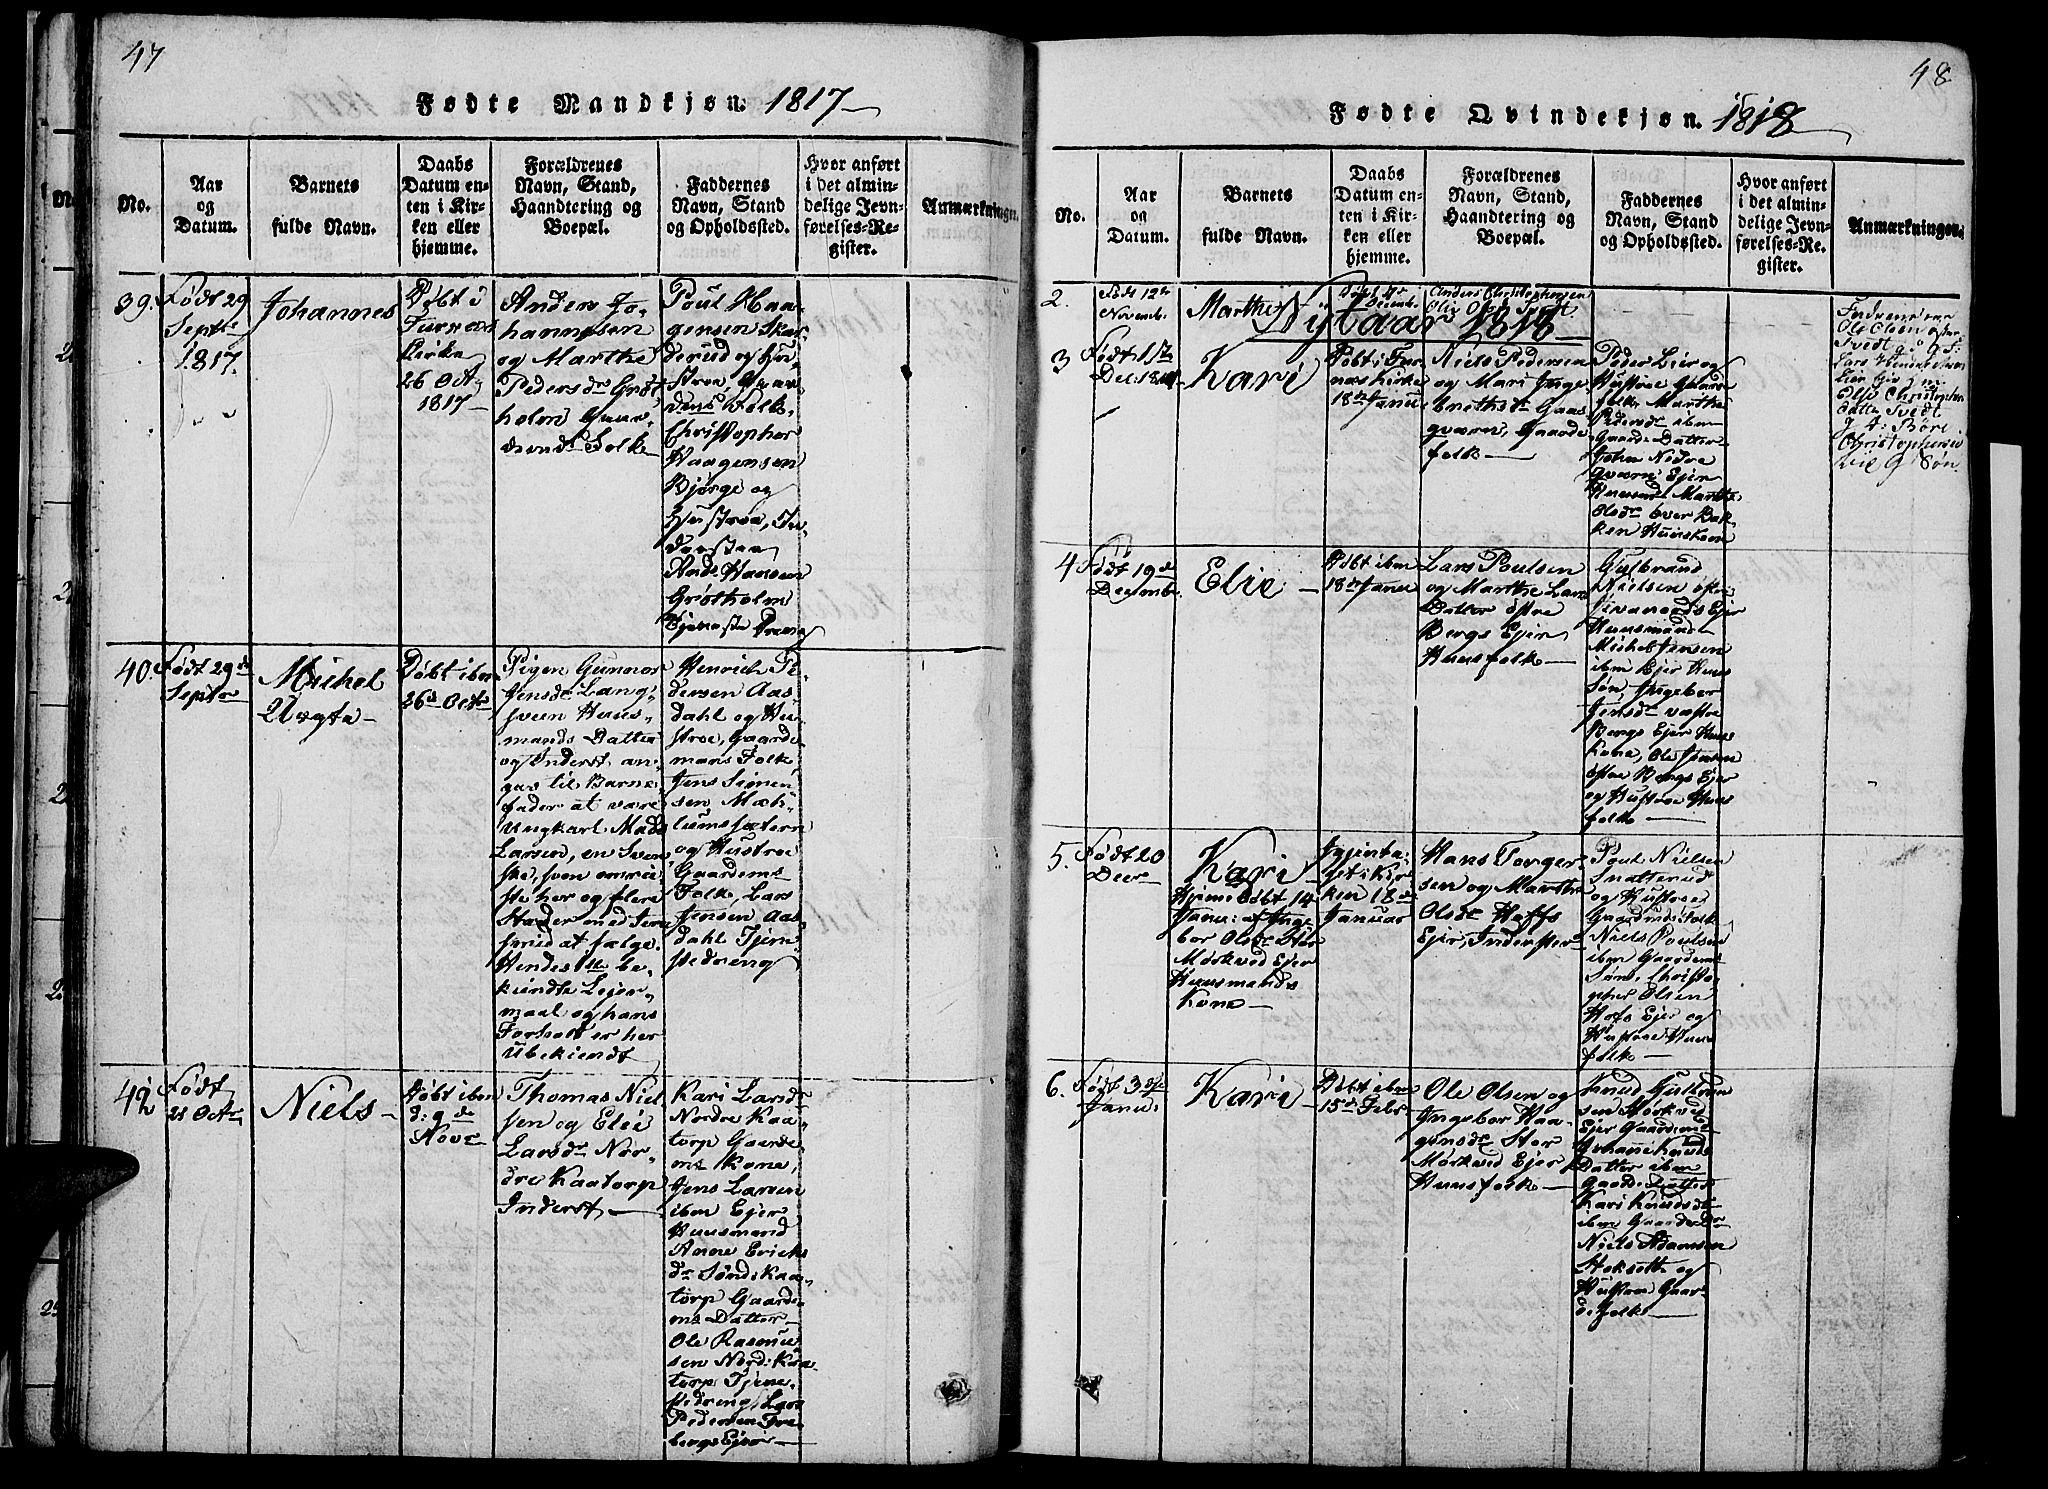 47
Fødte Mandkjøn. 1817
No.
Aar
og
Datum.
Barnets
fulde Navn.
Daabs
Datum en-
ten i Kir-
ken eller
hjemme.
Forældrenes
Navn, Stand,
Haandtering og
Boepæl.
Faddernes
Navn, Stand
og Opholdssted.
Hvor anført
i det almin-
delige Jevn-
førelses-Re-
gister.
Anmærkningn.
39.
Født 29
Septbr
1817.
Johannes
Døbt i
Furnæs
Kirke
26 Oct
1817
Anders Jo-
hannesen
og Marthe
Pedersdr Grøt
holm Gaar-
Folk
Poul Haa-
gensen Skat
derud og Hu-
stroe, Gaar
dens Folk
Christopher
Haagensen
Bjørge og
Hustroe,
Ande Hansen
Grøtholm
Tjeneste Dreng
40.
Født 29de
Septbr
Michel
Døbt ibm
26d Octr
Pigen Gunnor
Jensdr Lang-
sveen Huus-
mands Datter
og Inderst an-
gav til Barne
fader at være
Ungkarl Mads
Larsen, en Sven
ske, som omrei
ste her og flere
Stæder med
smed at følge.
Hendes 1te be-
kiendte Leier-
maal og hans
Forhold er her
ubekiendt
Henrich Pe-
dersen Aas
dahl og Hu
stroe, Gaarde
mans Folk
Jens Simen
sen Mæh-
lumssætern
og Hustroe
Gaardems
Folk, Lars
Jensen Aas
dahl Tjene
stedreng
42
Født
21 Octr
Niels
Døbt ibm
d: 9de
Nove
Thomas Niel
sen og Elie
Larsdr Nor-
dre Kaatorp
Inderst
Kari Larsdr
Nordre Kaa-
torp Gaarde
ms Kone,
Jens Larsen
ibm Ejer
Huusmand
Anne Erichs
dr Sønd: Kaa-
torp Gaarde-
ms Datter
Ole Rasmus
sen Nord: Kaa-
torp Tjene-
stedreng, Lars
Pedersen Fre
bergs Ejer
48
Fødte Qvindekjøn. 1818
No.
Aar
og
Datum.
Barnets
fulde Navn.
Daabs
Datum en-
ten i Kir-
ken eller
hjemme.
Forældrenes
Navn, Stand,
Haandtering og
Boepæl.
Faddernes
Navn, Stand
og Opholdssted.
Hvor anført
i det almin-
delige Jevn-
førelses-Re-
gister.
Anmærkninger.
2.
Født 12te
Novembr
Marthe
Decembr
Anders Christophersen
Olia Olsdr Tvedt
Fadrene ere
Ole Olsen
Tvedt g: F:
Lars Hendrichsen
Lier Ejer
Elie Christopher
datter Tvedt
g d: Tore
Christophersen
G Søn
Nytaar 1818
3
Født 17de
Dec: 1817
Kari
Døbt i Fur
næs Kirke
18de Janu
Niels Pedersen
og Mari Inge
brethsdr Gaas
qværn, Gaarde
folk
Peder Lier og
Hustroe Gaarde
folk Marthe
Pedersdr ibm
Gaard: Datter
John Nedre
qværn Ejer
Huusmd Marthe
Olsdr over Bak
ken Huuskone
4
Født 19de
Decembr
Elie
Døbt ibm
18de Janu
Lars Poulsen
og Marthe Lars
Datter østre
Bergs Ejer
Huusfolk
Gulbrand
Nielsen
Ejer
Huusmand
Michel Jensen
ibm Ejer Huus
Søn, Ingebor
Jensdr vestre
Bergs Ejer Huus
kone, Ole Jensen
østre Bergs Ejer
og Hustroe Huus
folk
5.
Født 20
Decr
Kari
Hjemedøbt 14
Janu: af Inge
bor Olsdr Stor
Mørkved Ejer
Huusmands
Kone
Igjenta-
get i Kir
ken 18de
Januar
Hans Torger
sen og Marthe
Olsdr Hoffs
Ejer, Inderster
Poul Nielsen
Snatterud
og Hustroe
Gaardmds Folk
Niels Poulsen
ibm Gaardems
Søn, Christo
pher Olsen
Hofs Ejer og
Hustroe Huus
folk
6.
Født 3die
Janu:
Kari
Døbt ibm
15de Febr
Ole Olsen og
Ingebor Haa-
gensdr Stor
Mørkved Ejer
Huusfolk
Knud Gulbran
sen Mørkved
Ejer Gaardemd
Johanne Knuds
Datter ibm
Gaard: Datter
Kari Knudsdr
ibm Gaards Dr
Niels Adamsen
Stoksett og
Hustroe Gaar
de folk